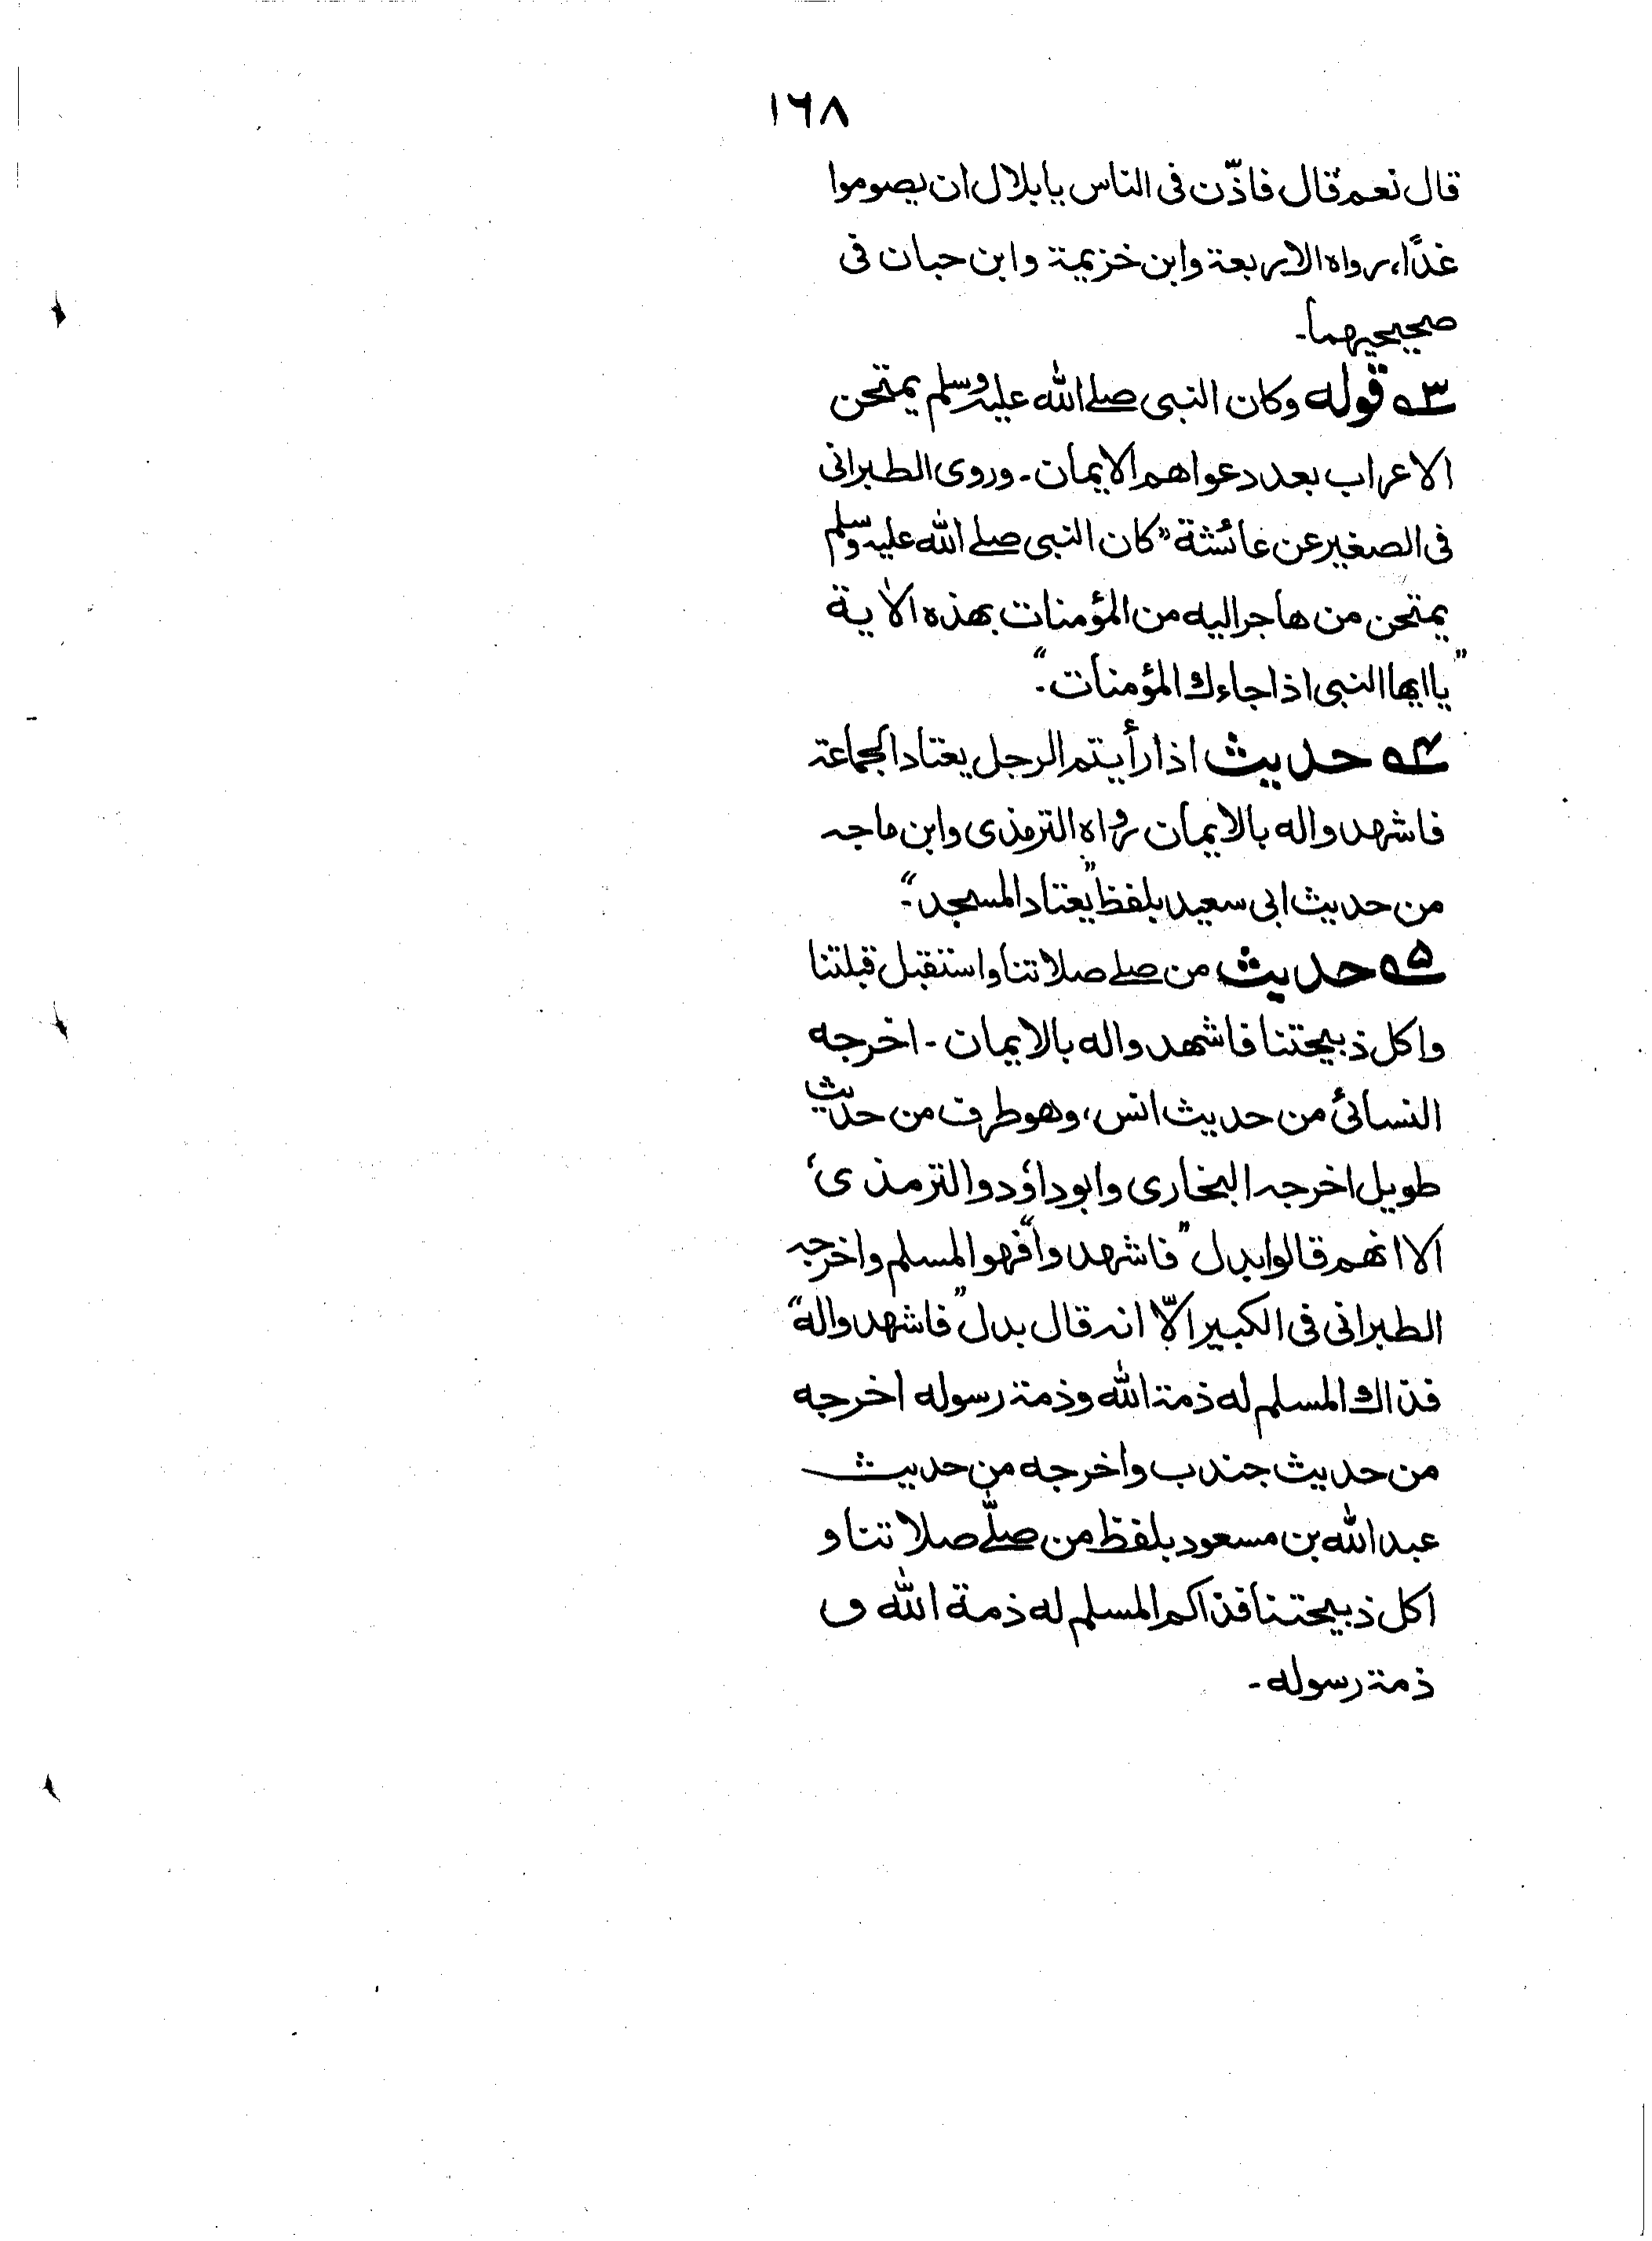 ١٦٨
قال نعم قال فاذّن فى الناس يا بلال ان يصوموا
غدًا، رواه الاربعة وابن خزيمة وابن حبان فى
صحيحيهما۔
؃۳ قوله وكان النبى صلے الله عليه وسلم يمتحن
الاعراب بعد دعواهم الايمان۔ وروى الطبرانى
فى الصغير عن عائشة "كان النبى صلے الله عليه وسلم
يمتحن من هاجر اليه من المؤمنات بهذه الاٰية
"يا ايها النبى اذا جاءك المؤمنات"۔
؃۴ حديث اذا رأيتم الرجل يعتاد الجماعة
فاشهدوا له بالايمان رواه الترمذى وابن ماجه
من حديث ابى سعيد بلفظ "يعتاد المسجد"۔
؃۵ حديث من صلے صلاتنا واستقبل قبلتنا
واكل ذبيحتنا فاشهدوا له بالايمان۔ اخرجه
النسائى من حديث انس، وهو طرف من حديث
طويل اخرجه البخارى وابو داؤد والترمذى،
الا انهم قالوا بدل "فاشهدوا" فهو المسلم واخرجه
الطبرانى فى الكبير الّا انه قال بدل "فاشهدوا له"
فذاك المسلم له ذمة الله وذمة رسوله اخرجه
من حديث جندب واخرجه من حديث
عبد الله بن مسعود بلفظ من صلّے صلاتنا و
اكل ذبيحتنا فذاكم المسلم له ذمة الله و
ذمة رسوله۔